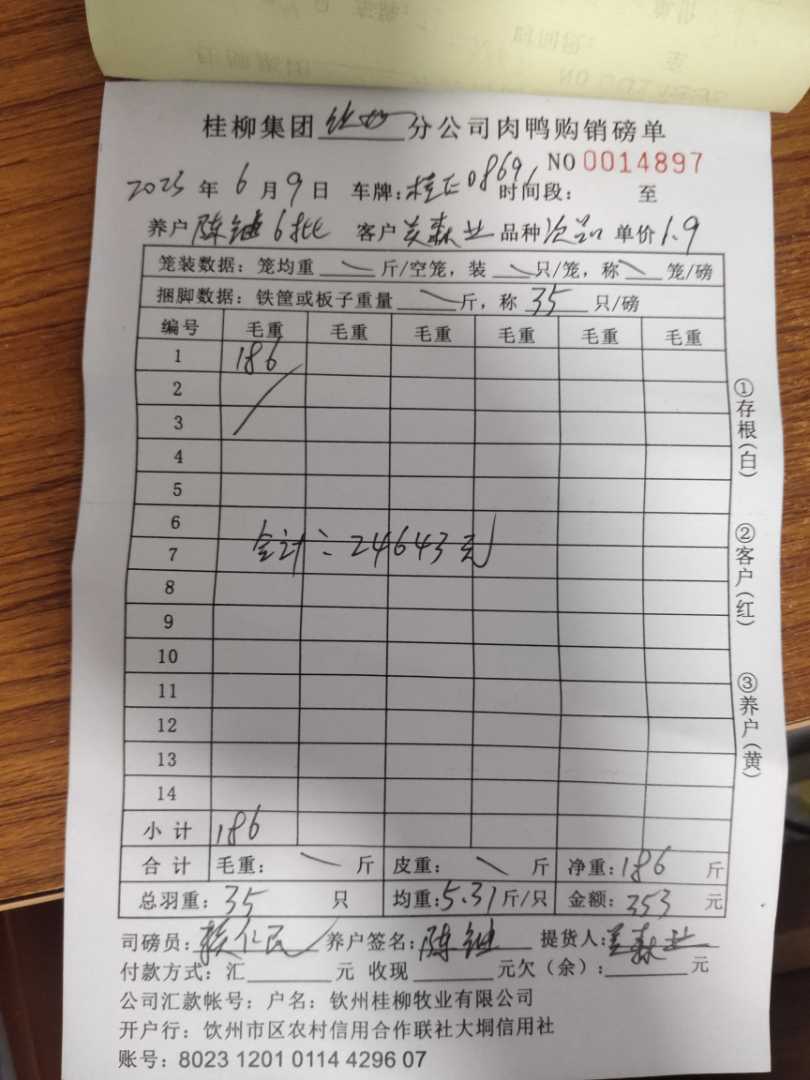 桂柳集团 钦州 分公司肉鸭购销磅单
NO 0014897
2023 年 6 月 9 日 车牌:桂D08691 时间段: 至
养户 陈继6批 客户 吴森业 品种 次品 单价 1.9
笼装数据:笼均重 斤/空笼,装 只/笼,称 笼/磅
捆脚数据:铁筐或板子重量 斤,称 35 只/磅
编号 毛重 毛重 毛重 毛重 毛重 毛重
1 186
2
3
4
5
6
合计:24643元
7
8
9
10
11
12
13
14
小 计 186
合 计 毛重: 斤 皮重: 斤 净重:186 斤
总羽重:35 只 均重:5.31斤/只 金额:353 元
司磅员: 养户签名:陈继 提货人:吴森业
付款方式:汇 元 收现 元欠(余): 元
公司汇款帐号:户名:钦州桂柳牧业有限公司
开户行:饮州市区农村信用合作联社大垌信用社
账号:8023 1201 0114 4296 07
①存根(白)
②客户(红)
③养户(黄)